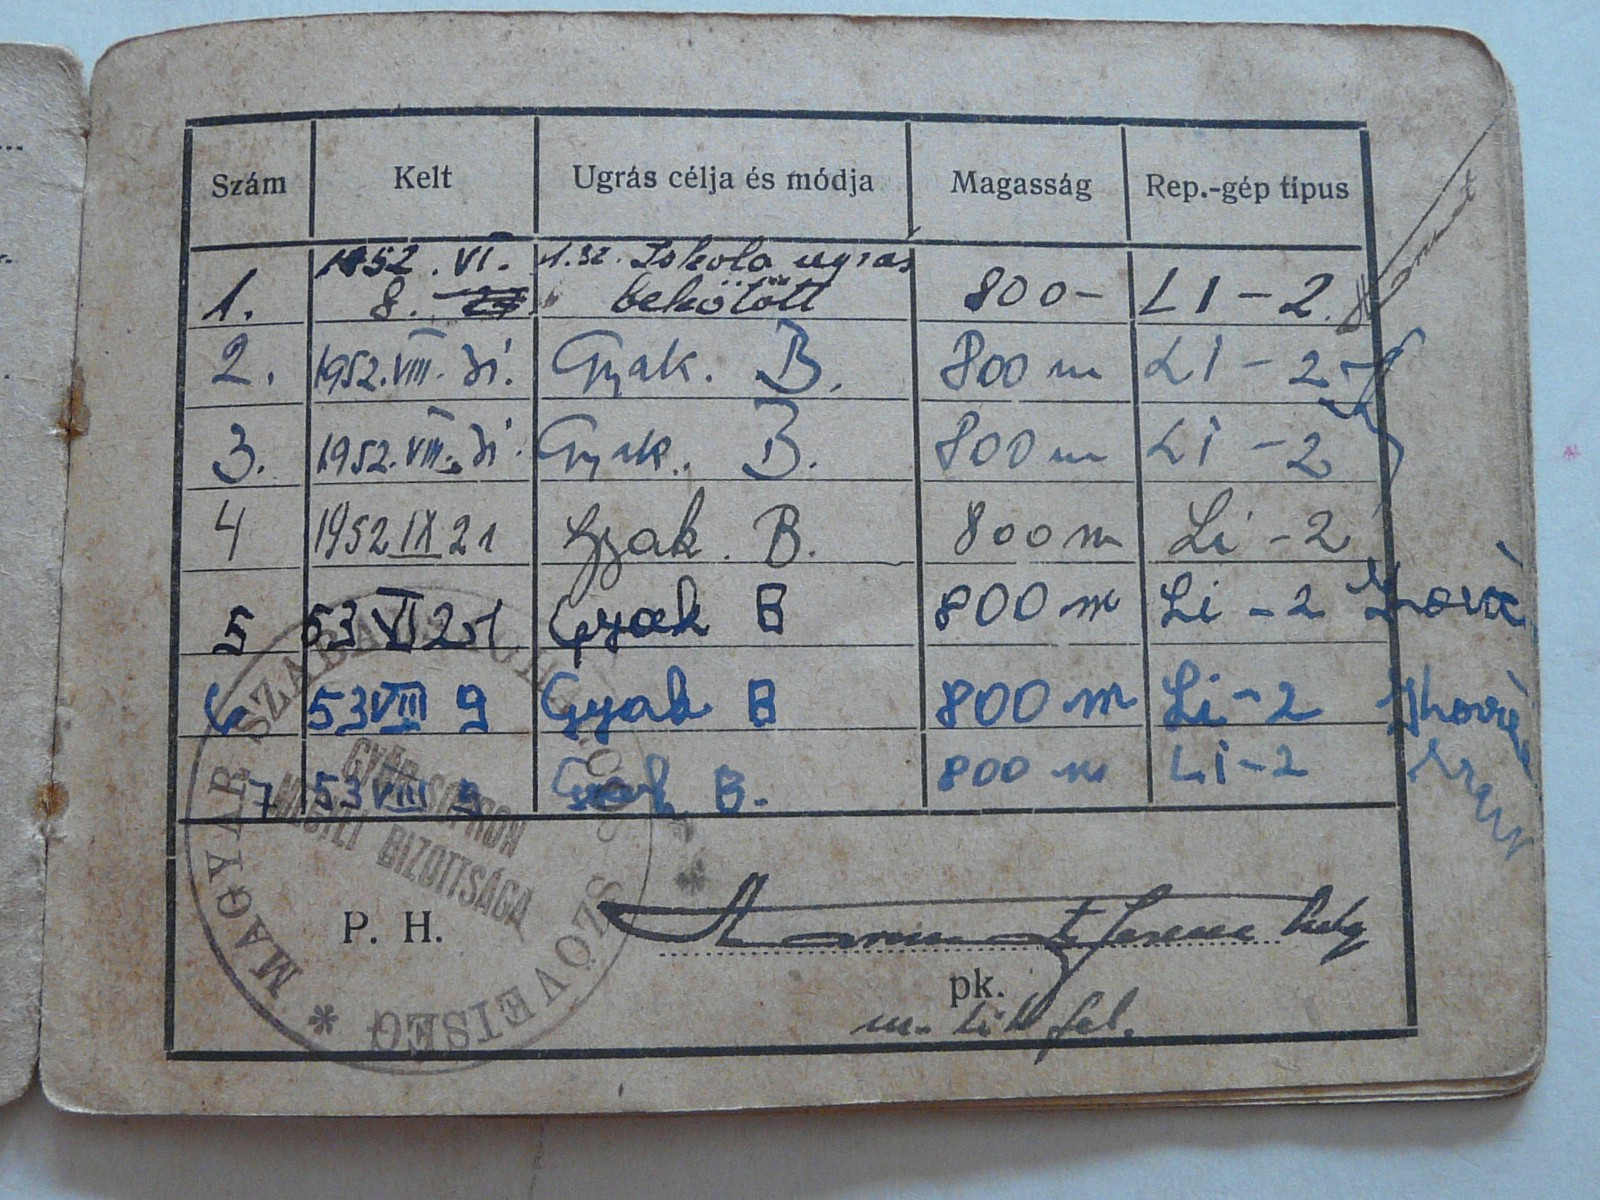 Szám Kelt Ugrás célja és módja Magasság Rep.-gép típus
1. 1952. VI. 8. 1. sz. Iskola ugrás bekötött 800- LI-2.
2. 1952. VIII. 31. Gyak. B. 800 m LI-2
3. 1952. VIII. 31. Gyak. B. 800 m LI-2
4 1952 IX 21 Gyak. B. 800 m Li-2
5 53 VI 21 Gyak B 800 m Li-2
6 53 VIII 9 Gyak B 800 m Li-2
7 53 VIII 9 Gyak B. 800 m LI-2
MAGYAR SZABADSÁGHARCOS SZÖVETSÉG
GYŐR-SOPRON
MEGYEI BIZOTTSÁGA
P. H.
Ferenc
pk.